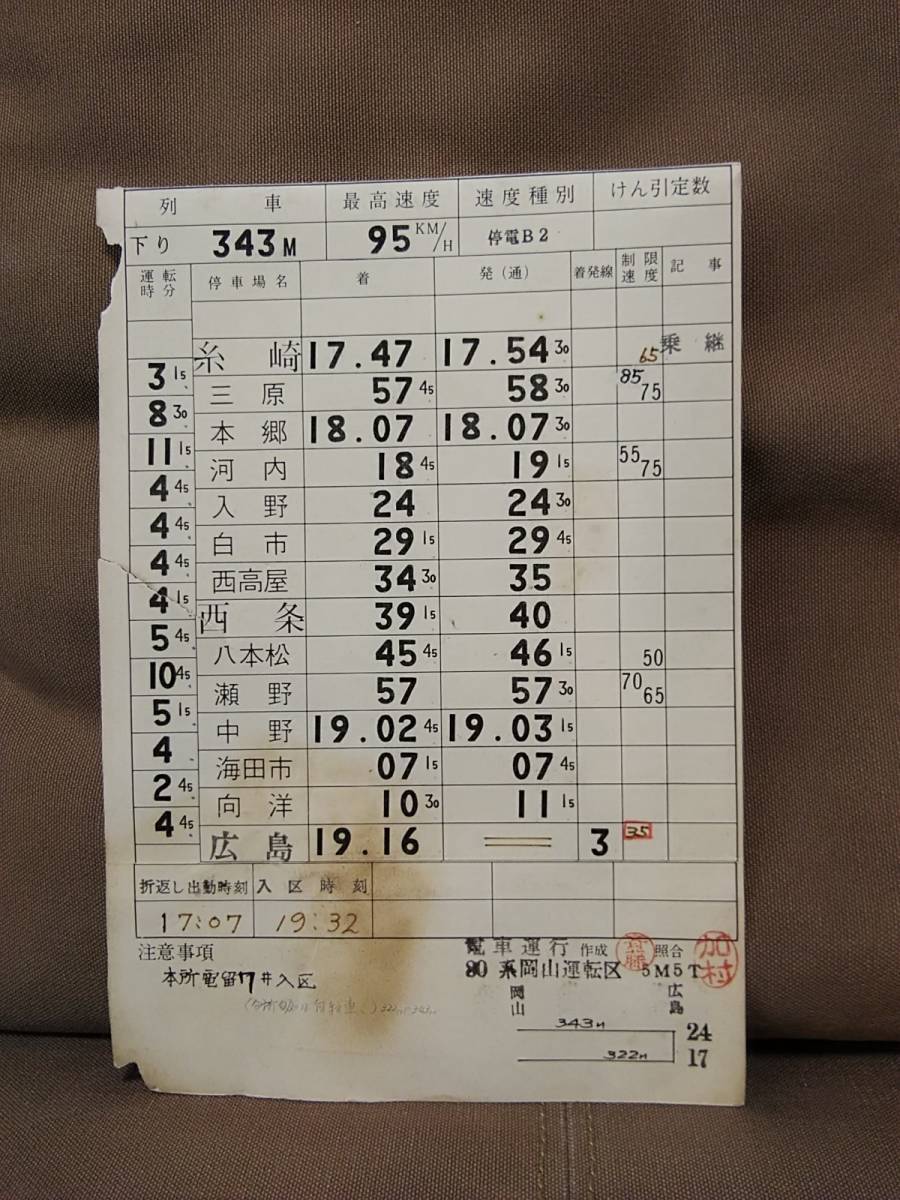 列車 最高速度 速度種別 けん引定数
下り 343M 95 KM/H 停電B2
運転時分 停車場名 着 発(通) 着発線 制限速度 記事
糸崎 17.47 17.54 30 65 乗継
3 15
三原 57 45 58 30 85 75
8 30
本郷 18.07 18.07 30
11 15
河内 18 45 19 15 55 75
4 45
入野 24 24 30
4 45
白市 29 15 29 45
4 45
西高屋 34 30 35
4 15
西条 39 15 40
5 45
八本松 45 45 46 15 50
10 45
瀬野 57 57 30 70 65
5 15
中野 19.02 45 19.03 15
4
海田市 07 15 07 45
2 45
向洋 10 30 11 15
4 45
広島 19.16 3 35
折返し出勤時刻 入区時刻
17:07 19:32
注意事項
本所電留17井入区
電車運行 作成 照合 加村
80系岡山運転区 5M5T
岡山 広島
343M 24
322M 17